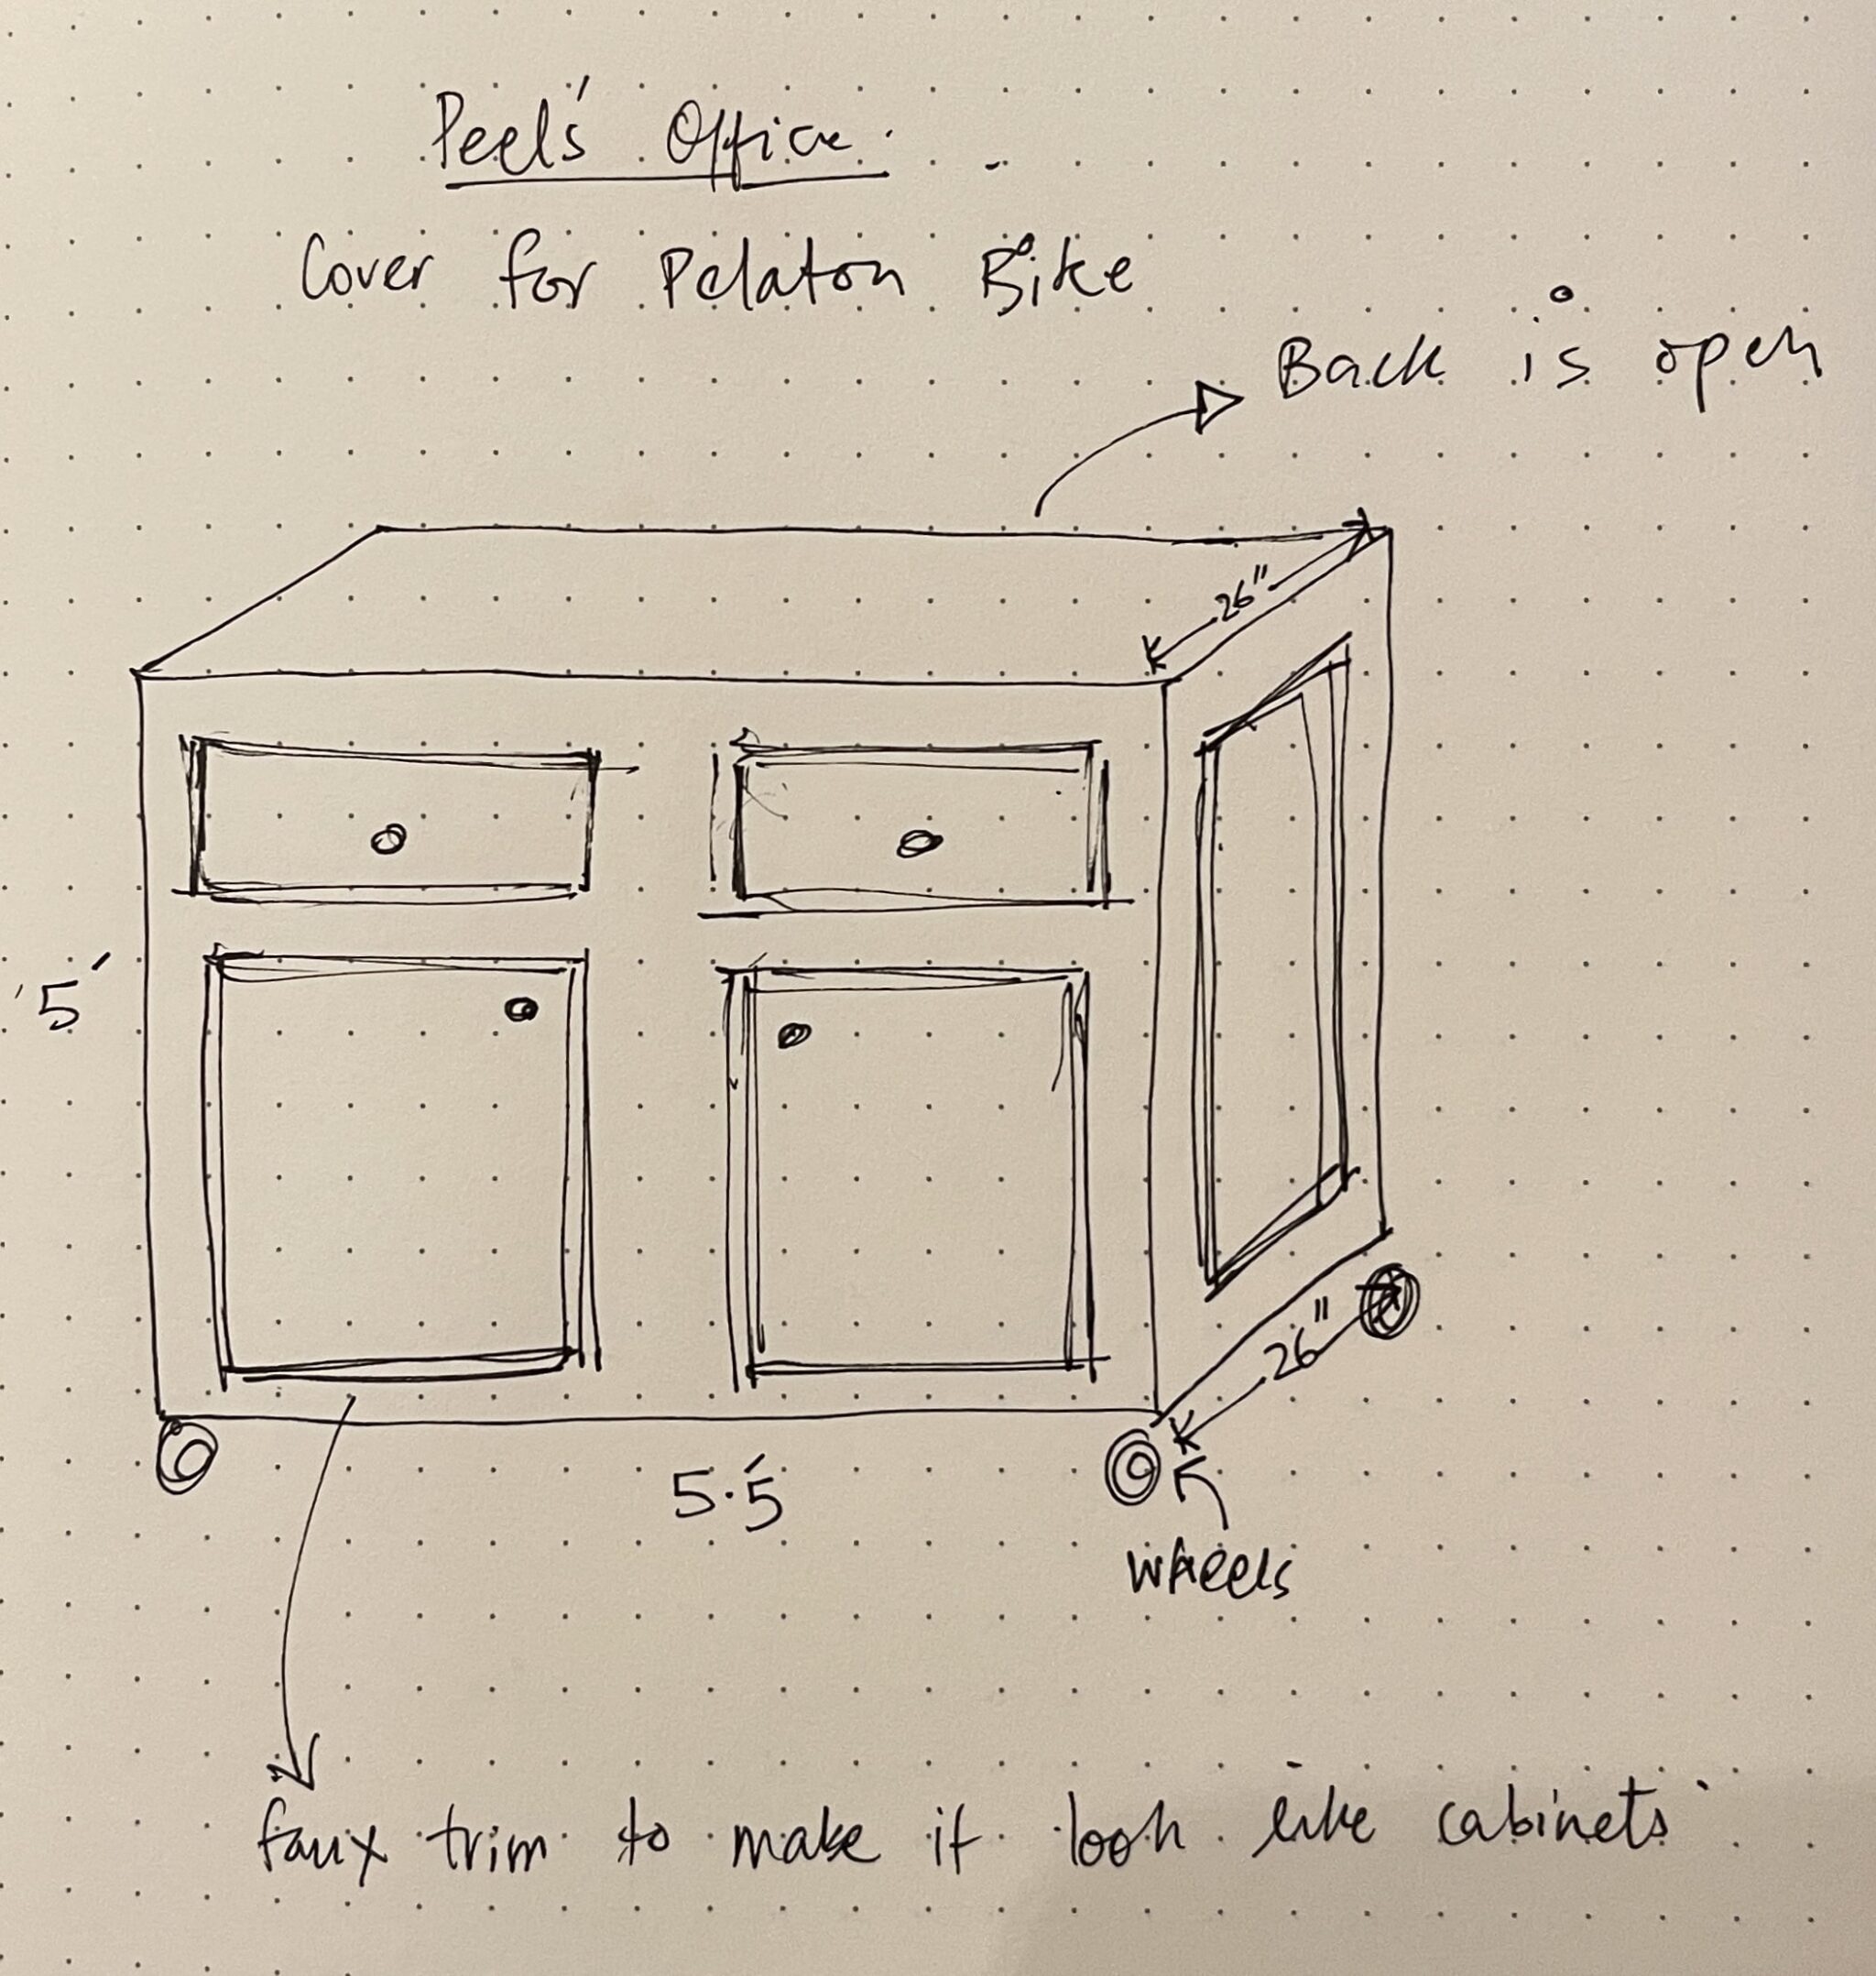 Peel's Office
Cover for Pelaton Bike
Back is open
26"
5'
26"
5.5'
wheels
faux trim to make it look like cabinets